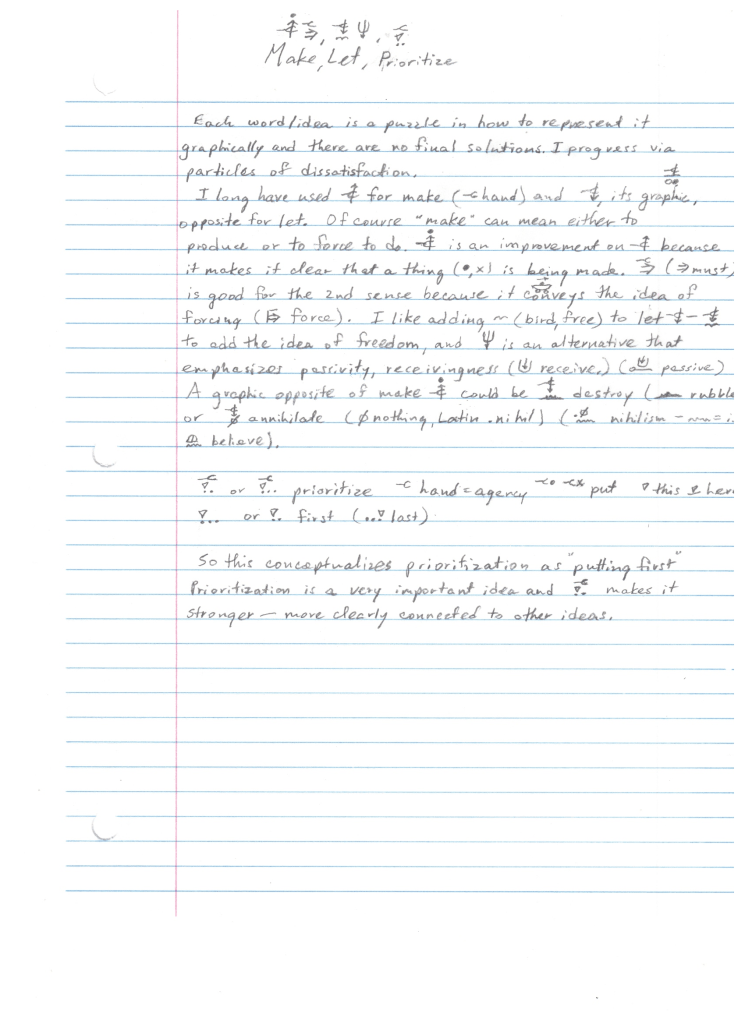 Make, Let, Prioritize
Each word/idea is a puzzle in how to represent it
graphically and there are no final solutions. I progress via
particles of dissatisfaction.
I long have used for make (hand) and , its graphic,
opposite for let. Of course "make" can mean either to
produce or to force to do. is an improvement on because
it makes it clear that a thing (•,x) is being made. (⇒must,
is good for the 2nd sense because it conveys the idea of
forcing ( force). I like adding ~ (bird, free) to let –
to add the idea of freedom, and Ψ is an alternative that
emphasizes passivity, receivingness ( receive) ( passive)
A graphic opposite of make could be destroy ( rubble
or annihilate (ø nothing, Latin nihil) ( nihilism –
believe).
or prioritize hand = agency put ▿ this her
▿.. or first (..▿ last)
So this conceptualizes prioritization as "putting first"
Prioritization is a very important idea and makes it
stronger — more clearly connected to other ideas.